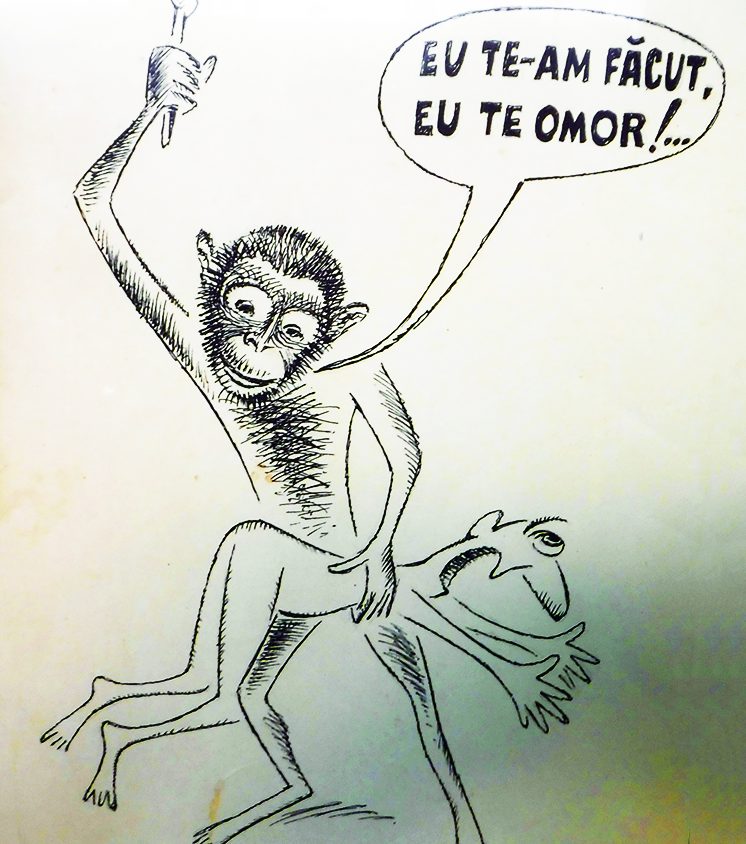 EU TE-AM FĂCUT,
EU TE OMOR!...